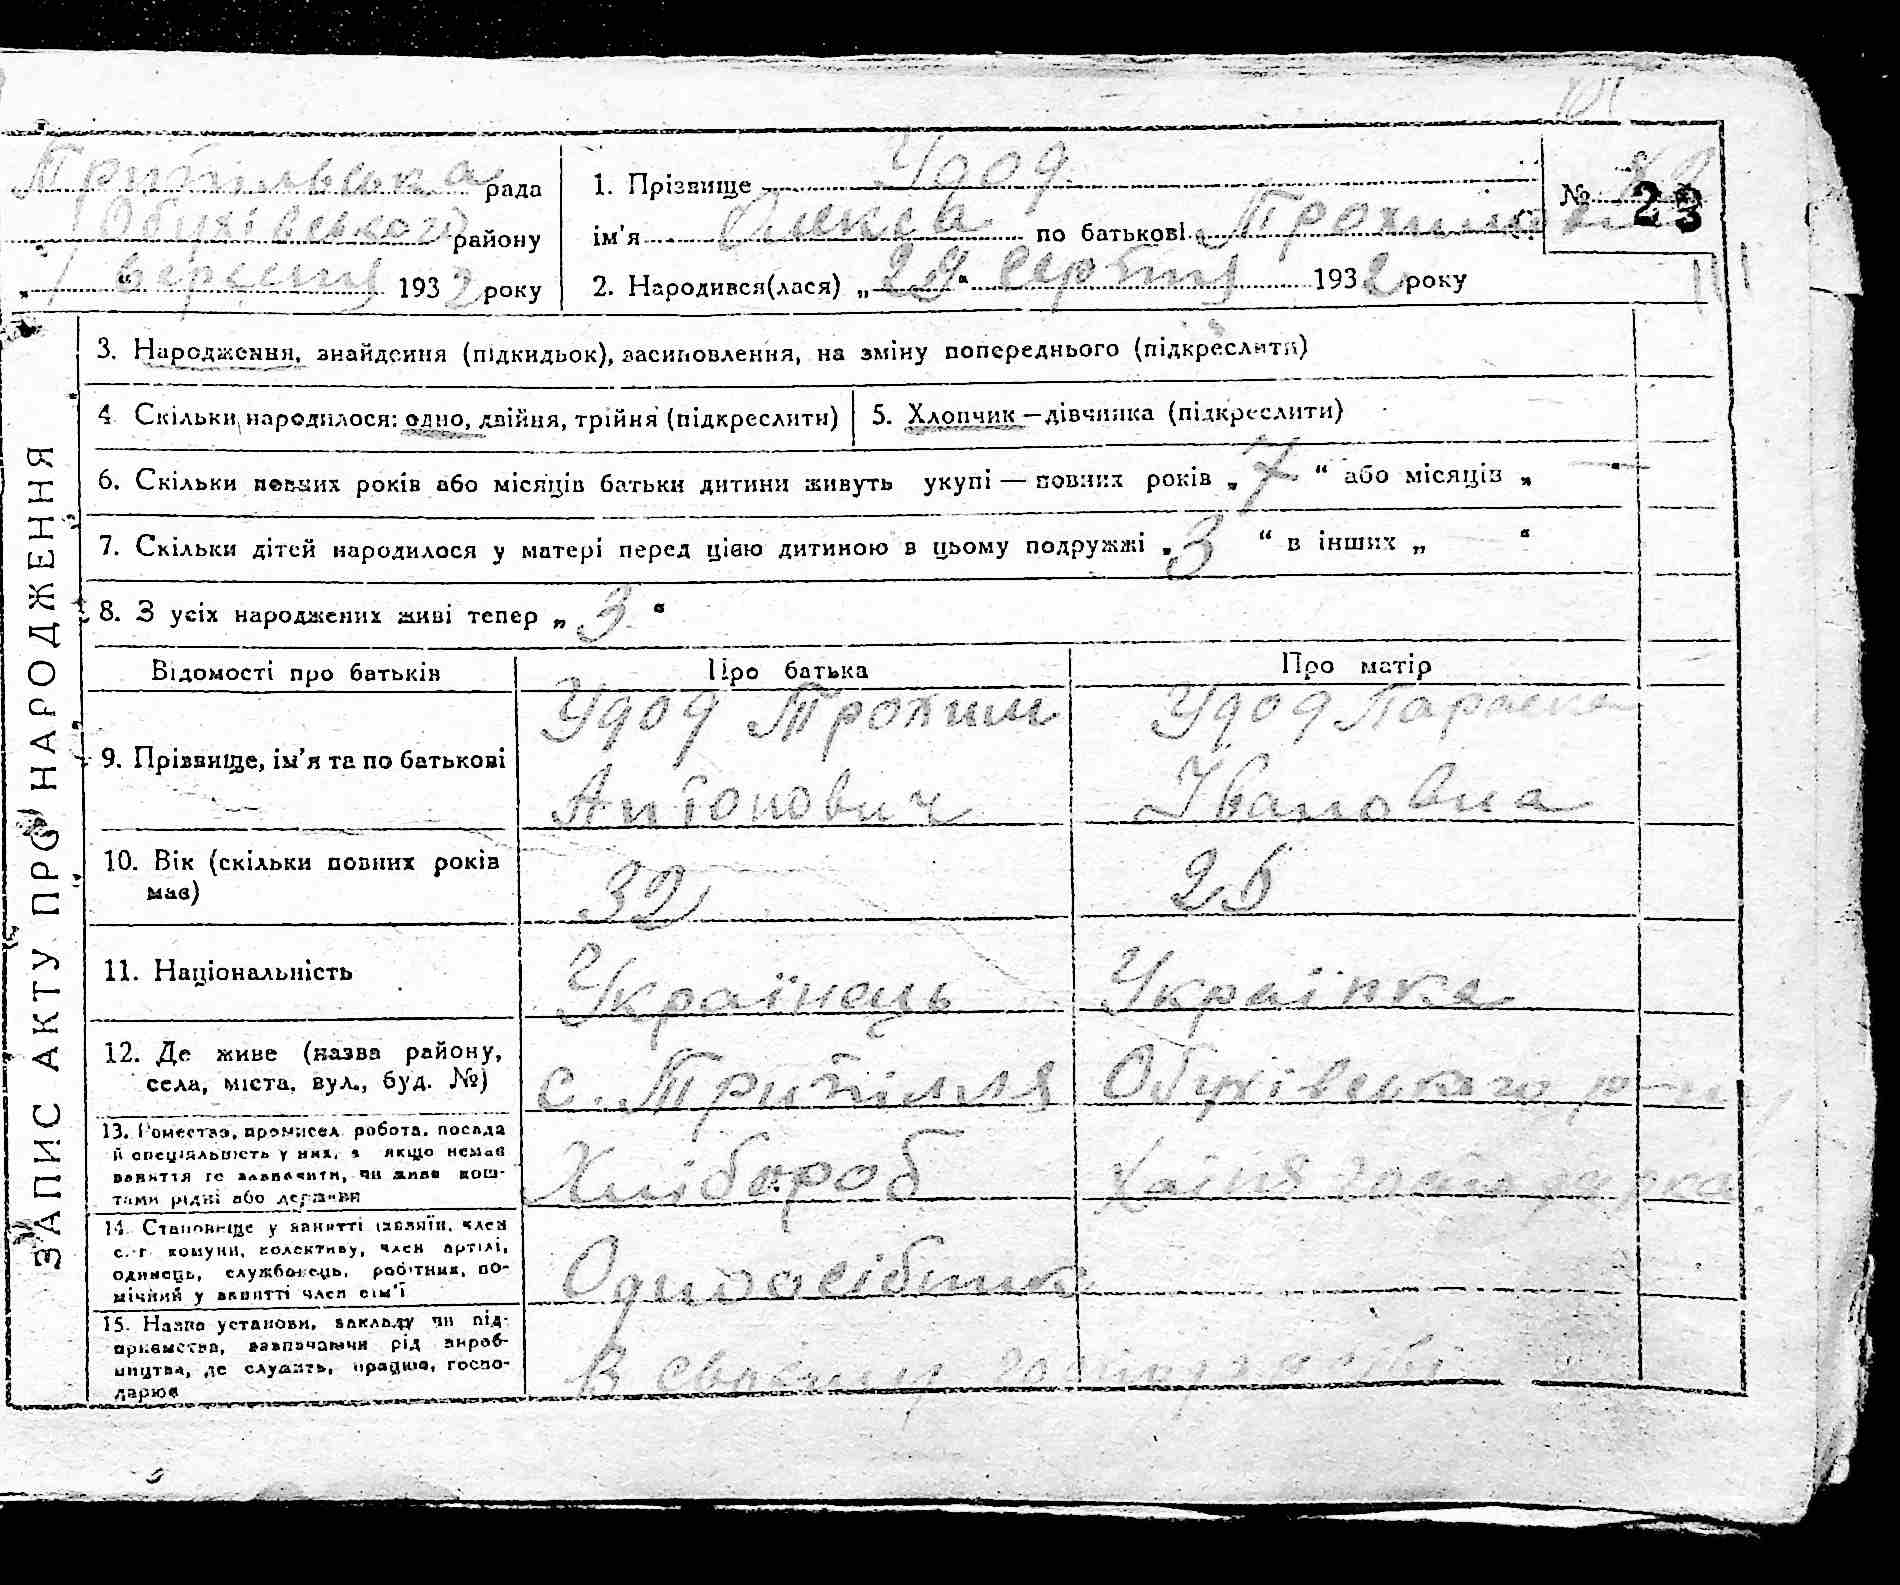 Трипільська рада
Обухівського району
„ 1 “ вересня 1932 року
1. Прізвище Удод
ім'я Олекса по батькові Трохимович
2. Народився(лася) „ 29 “ серпня 1932 року
№ 23
3. Народження, знайдення (підкидьок), засиновлення, на зміну попереднього (підкреслити)
4. Скільки народилося: одно, двійня, трійня (підкреслити)
5. Хлопчик — дівчинка (підкреслити)
6. Скільки повних років або місяців батьки дитини живуть укупі — повних років „ 7 “ або місяців „ — “
7. Скільки дітей народилося у матері перед цією дитиною в цьому подружжі „ 3 “ в інших „ “
8. З усіх народжених живі тепер „ 3 “
ЗАПИС АКТУ ПРО НАРОДЖЕННЯ
Відомості про батьків
Про батька
Про матір
9. Прізвище, ім'я та по батькові
Удод Трохим
Антонович
Удод Параска
Івановна
10. Вік (скільки повних років
має)
32
26
11. Національність
Українець
Українка
12. Де живе (назва району,
села, міста, вул., буд. №)
с. Трипілля Обухівського р-ну
13. Ромество, промисел, робота, посада
й спеціяльність у них, а якщо немає
заняття то зазначити, чи живе кош-
тами рідні або держави
Хлібороб
Хатня господарка
14. Становище у занятті (хазяїн, член
с.-г. комуни, колективу, член артілі,
одинець, службовець, робітник, по-
мічний у занятті член сім'ї
Одноосібник
15. Назва установи, закладу чи під-
приємства, зазначаючи рід вироб-
ництва, де служить, працює, госпо-
дарює
В своєму господарстві